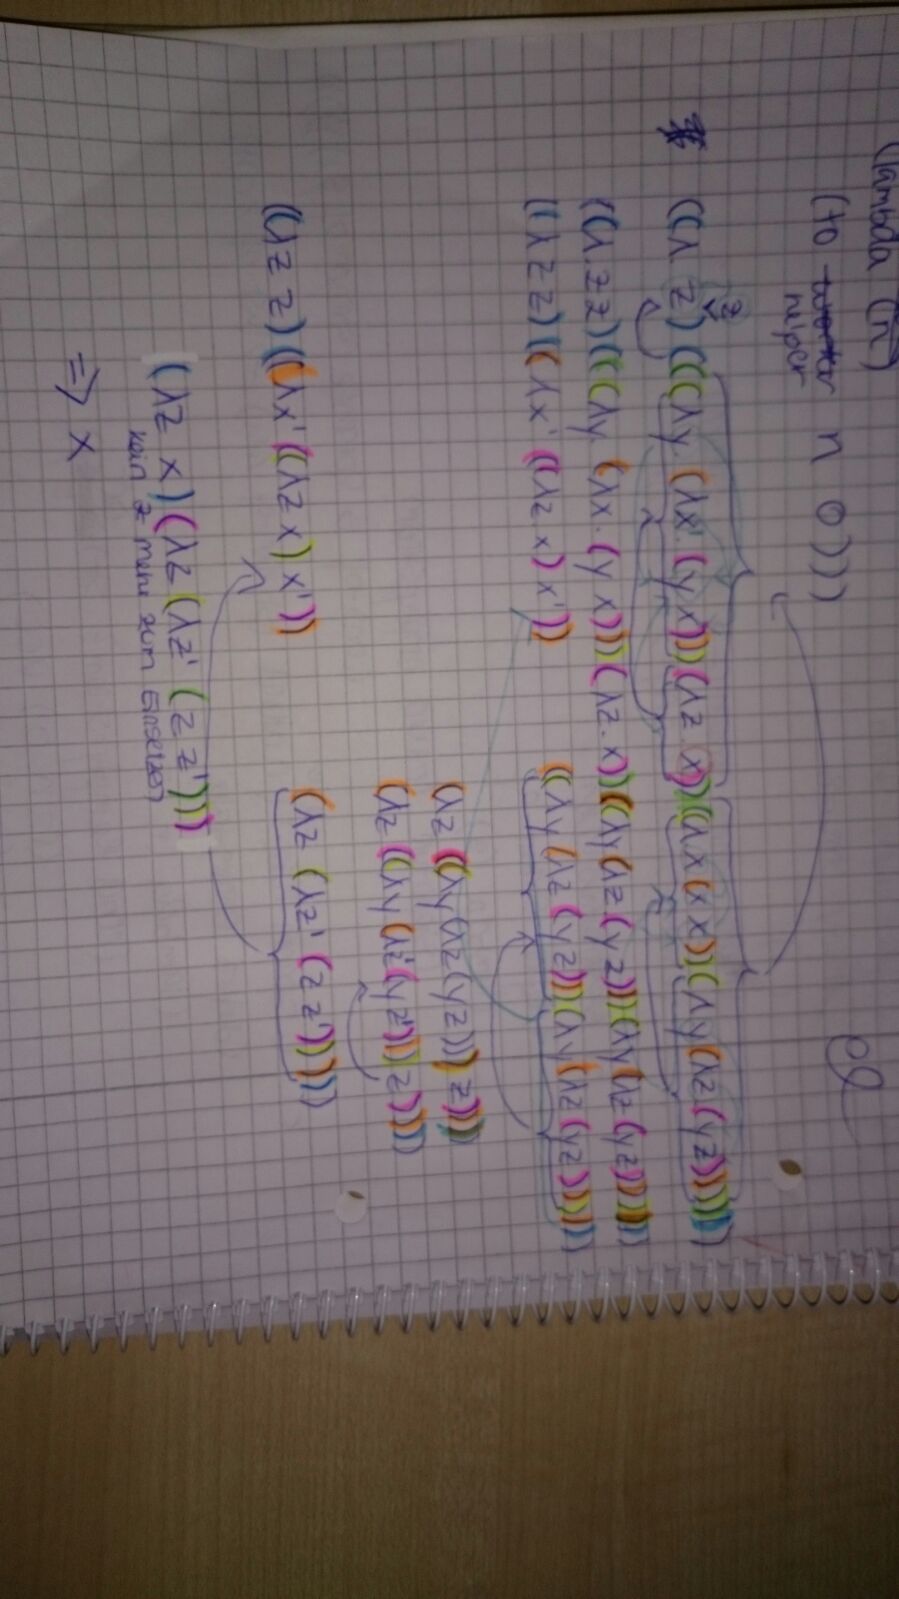 (lambda (n)
(to helper n 0)))
((λ z) z) (((λy. (λx'. (y x'))) (λz x)) ((λx (x x)) (λy (λz (y z)))))
((λ. z z) (((λy. (λx. (y x))) (λz. x)) ((λy (λz (y z))) (λy (λz (y z))))))
((λ z z) ((λx' ((λz x) x')) ((λy (λz (y z))) (λy (λz (y z))))))
(λz ((λy (λz (y z))) z))))
(λz ((λy (λz' (y z'))) z))))
((λz z) ((λx' ((λz x) x')) (λz (λz' (z z')))))
(λz x) (λz (λz' (z z')))
kein z mehr zum Einsetzen
=> x